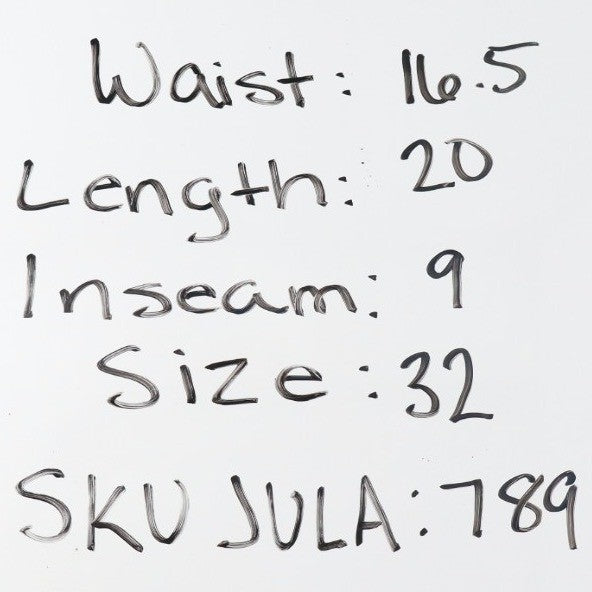 Waist: 16.5
Length: 20
Inseam: 9
Size: 32
SKU JULA: 789